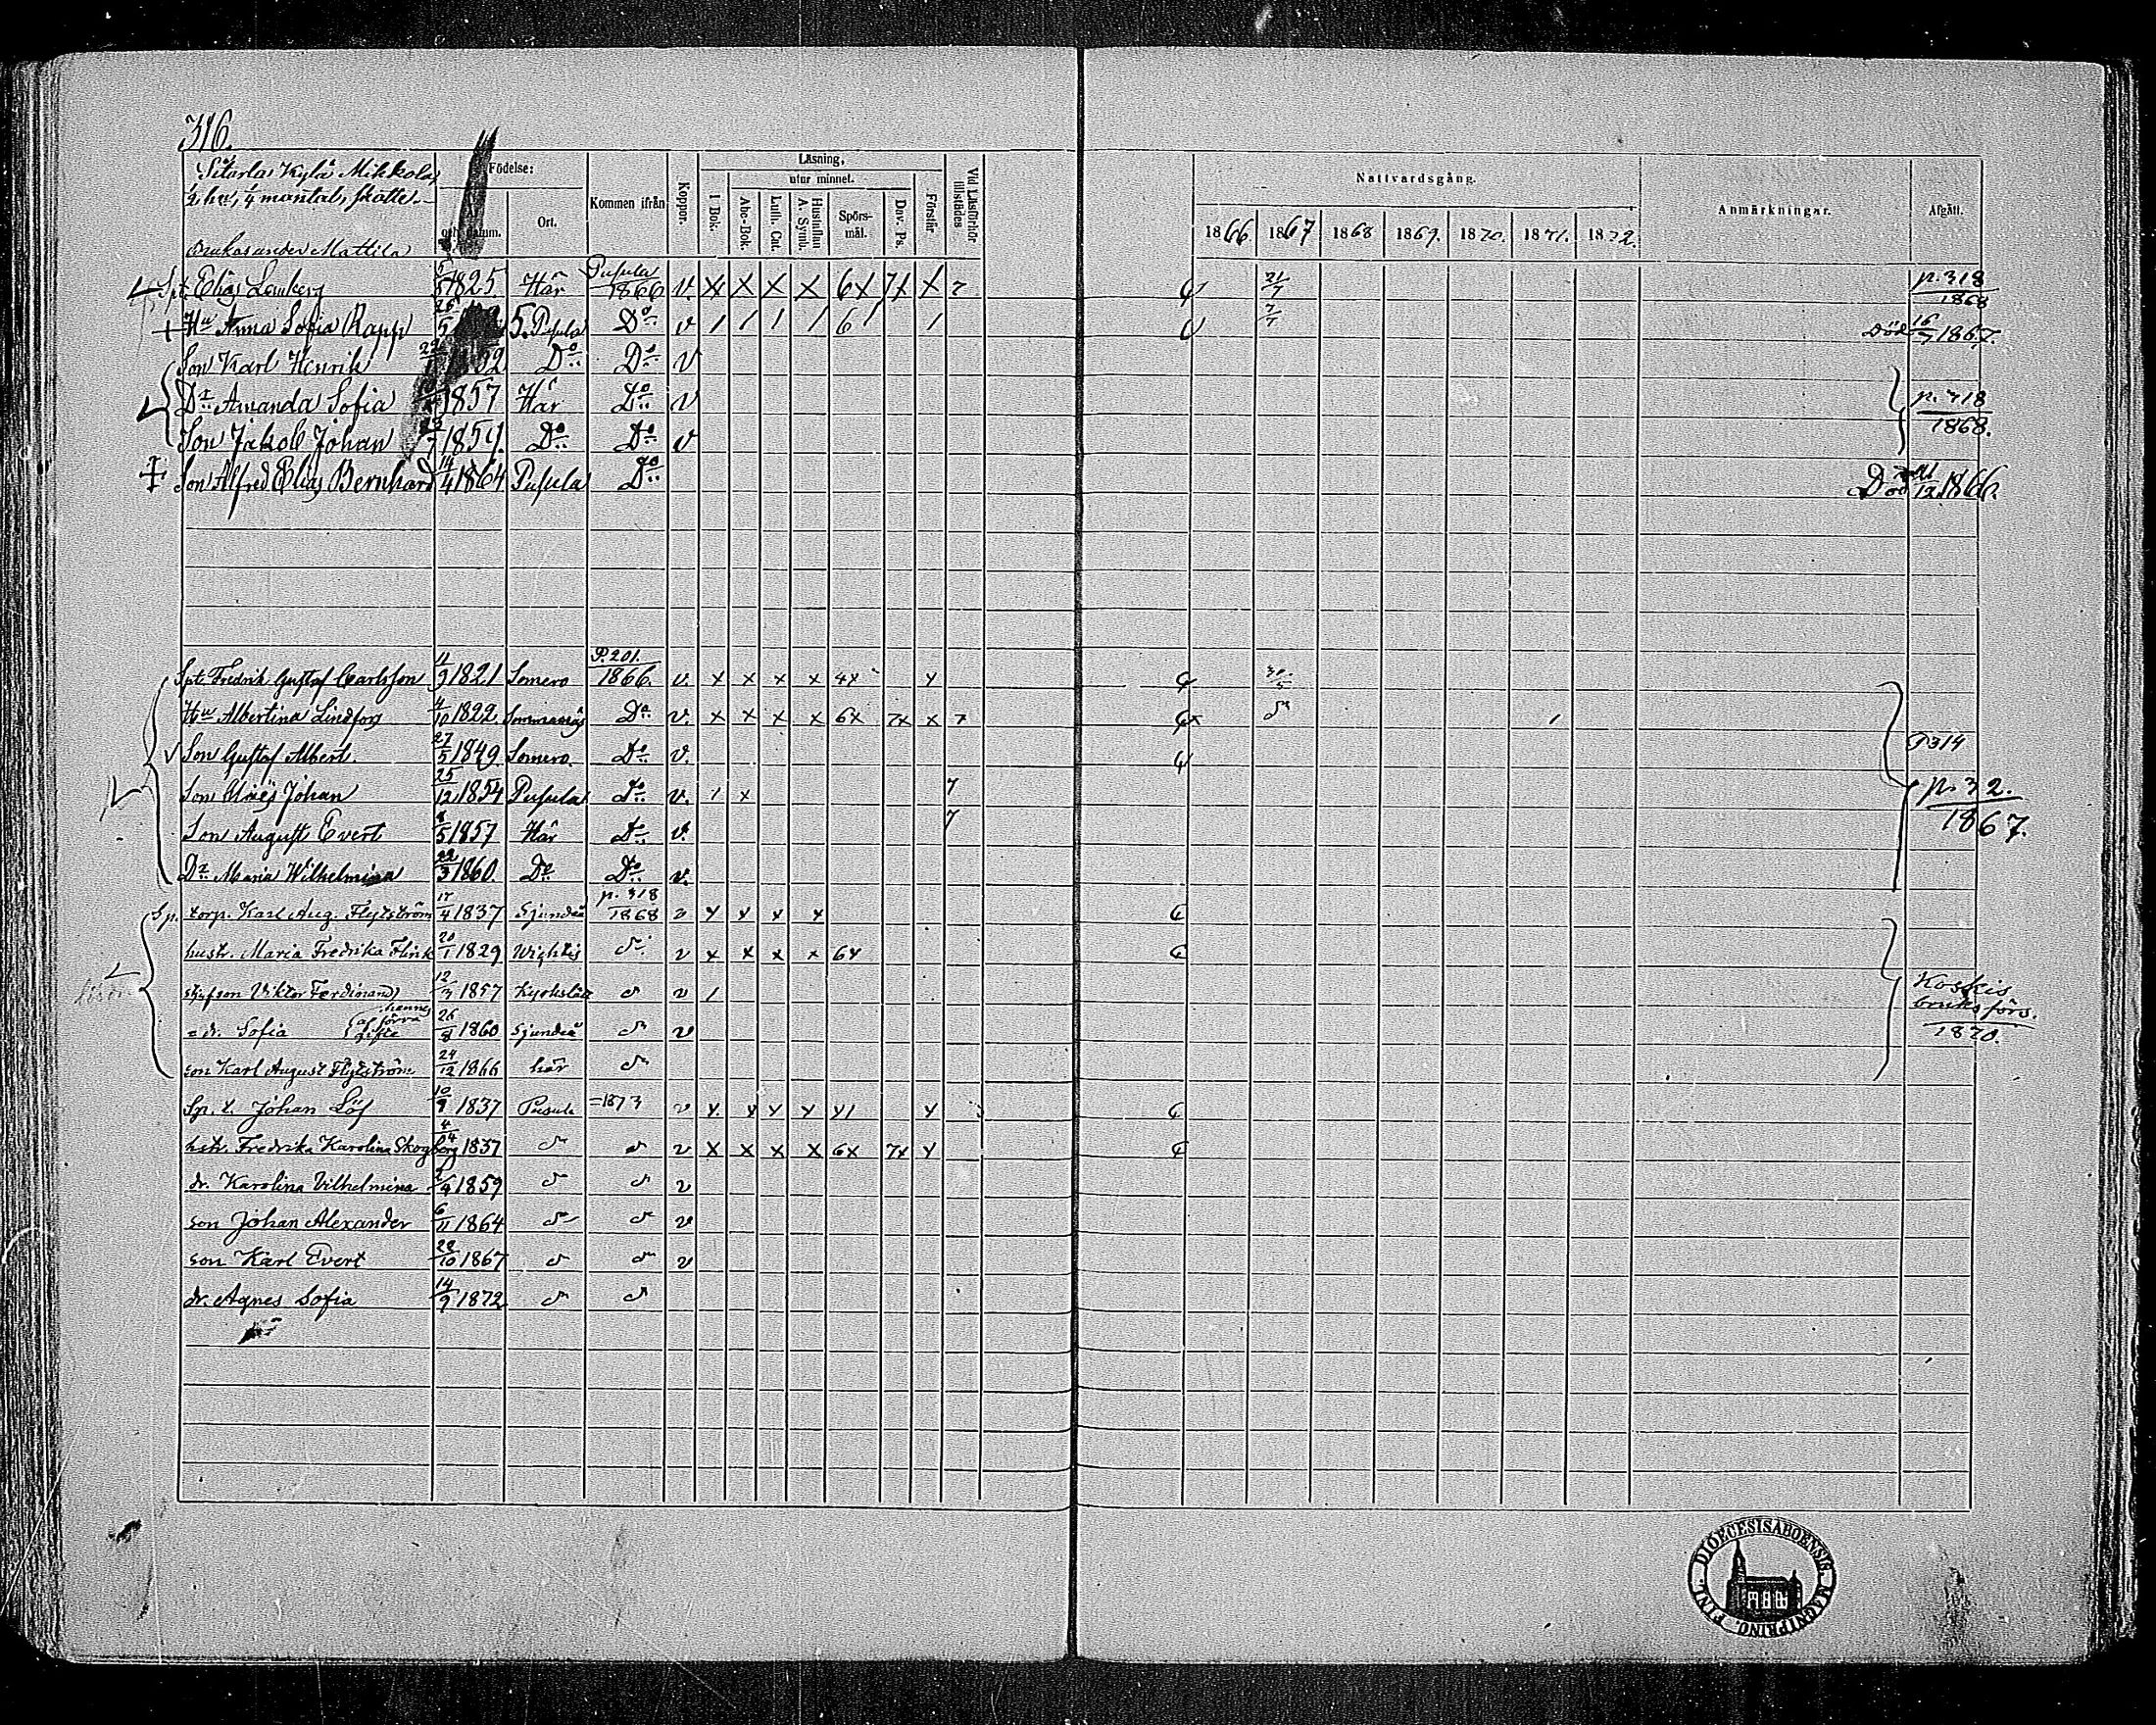 316.
Sitarla Kylä Mikkola,
1/2 hel, 1/4 mantal, skatte.
Brukas under Mattila
Födelse: År och datum. Ort. Kommen ifrån Koppor. Läsning, I Bok. utur minnet. Abc-Bok. Luth. Cat. Hustaflan A. Symb. Spörsmål. Dav. Ps. Förstår Vid Läsförhör tillstädes Nattvardsgång. 1866 1867 1868 1869. 1870. 1871. 1872. Anmärkningar. Afgått.
Spt. Elias Lemberg 5/5 1825. Här Pusula 1866 v. X X X X 6X 7X X 7 21/7 p. 318 1868
+ Hu Anna Sofia Rapp 5. Pusula Do v / / / / 6/ / 7/7 Död 16/5 1867.
Son Karl Henrik Do Do v
Dr Amanda Sofia 1857 Här Do v p. 318 1868.
Son Jakob Johan 1859. Do Do v
+ Son Alfred Elias Bernhard 14/4 1864 Pusula Do Död /12 1866.
Spt. Fredrik Gustaf Carlsson 11/9 1821 Somero P. 201. 1866. v. x x x x 4x x 30/5
Hu Albertina Lindfors 4/10 1822. Sommarnäs Do v. x x x x 6x 7x x 7
Son Gustaf Albert. 27/5 1849. Somero. Do v. P 314
Son Johan 25/12 1854 Pusula Do v. / x 7 p. 32. 1867.
Son August Evert 1/5 1857 Här Do v. 7
Dr Maria Wilhelmina 22/3 1860. Do Do v.
Sp. torp. Karl Aug. Flytström 17/4 1837 Sjundeå p. 318 1868 v x x x x
hustr. Maria Fredrika Flink 20/1 1829 Wichtis v x x x x 6x
styfson Viktor Ferdinand 12/3 1857 Kyrkslätt v / Koskis bruksförs. 1870.
= dr. Sofia hennes af förra gifte 26/8 1860 Sjundeå v
son Karl August Flytström 24/12 1866 här
Sp. t. Johan Löf 10/9 1837 Pusula =1873 v x x x x x/ x
hstr. Fredrika Karolina Skogberg 4/4 1837 v x x x x 6x 7x x
dr. Karolina Vilhelmina 2/4 1859 v
son Johan Alexander 6/11 1864 v
son Karl Evert 28/10 1867 v
dr. Agnes Sofia 14/9 1872
FINL. DIOECESIS ABOENSIS. MAGNI PRINC.